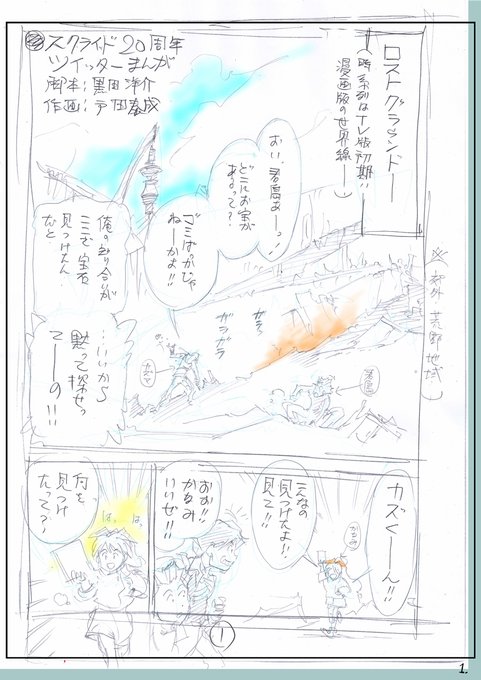 スクライド20周年
ツイッターまんが
脚本:黒田洋介
作画:戸田泰成
ロストグラウンド
(時系列はTV版初期!!
漫画版の世界線―)
※郊外 荒野地域
おい、君島あーっ!
どこにお宝が
あるって?
ゴミばかじゃ
ねーかよ!!
俺の知り合いが
ここで宝石
見つけたん
だと
…いいから
黙って探せっ
てーの!!
ガラ
ガラガラ
カズマ
君島
カズくーん!!
こんなの
見つけたよ!!
見て!!
かなみ
おお!!
かなみ
いいぜ!!
何を
見つけ
たって?
はっ はっ
1
1.